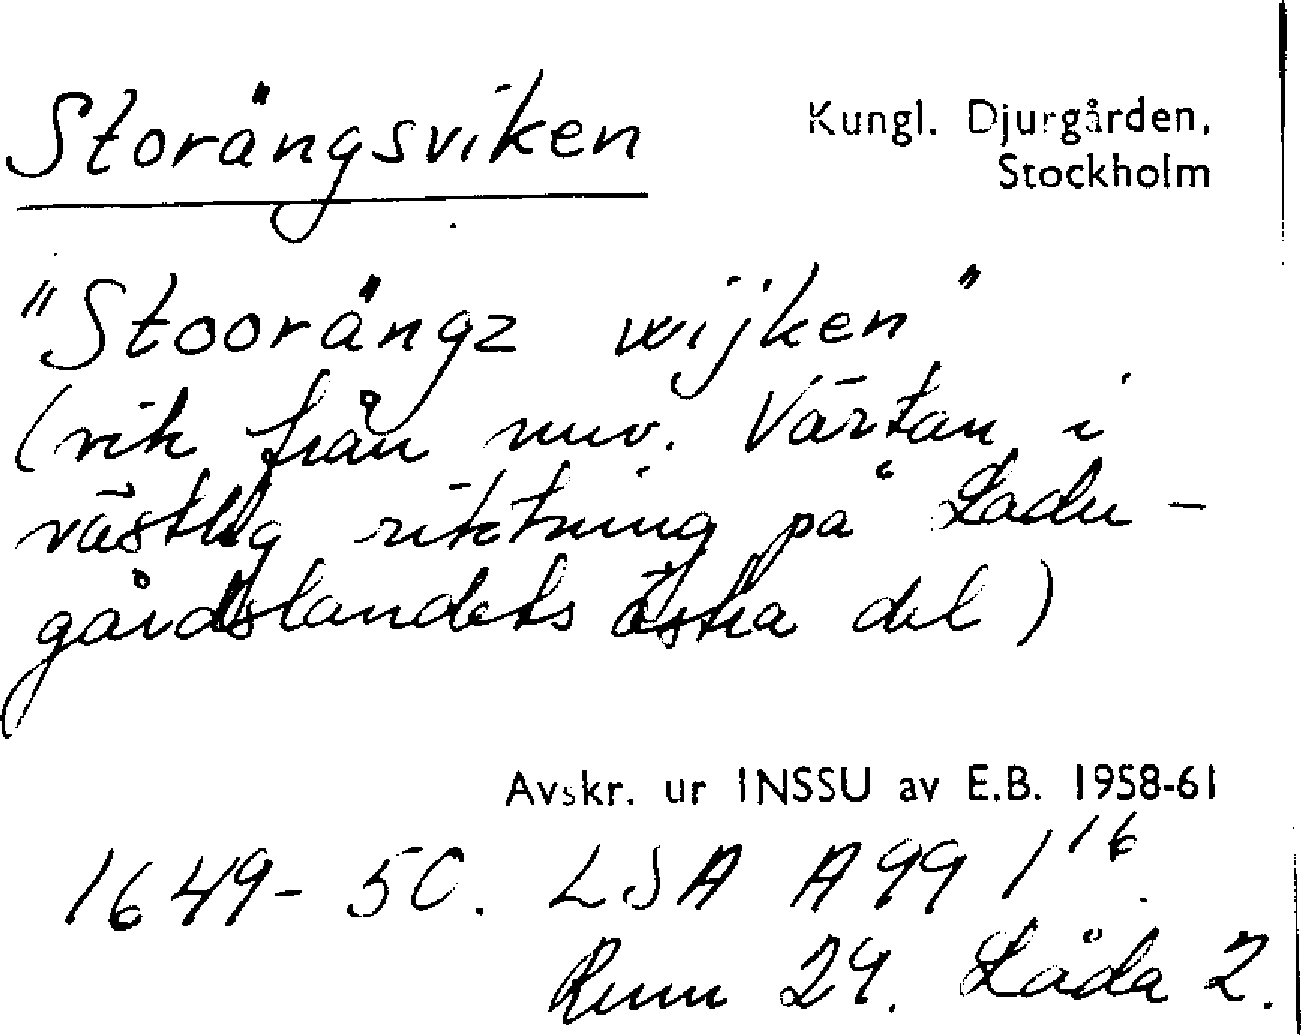 Storängsviken
Kungl. Djurgården,
Stockholm
"Stoorängz wijken"
(vik från nuv. Värtan i
västlig riktning på Ladu-
gårdslandets östra del)
Avskr. ur INSSU av E.B. 1958-61
1649-50. LSA A 99 1^16.
Rum 24. Låda 2.